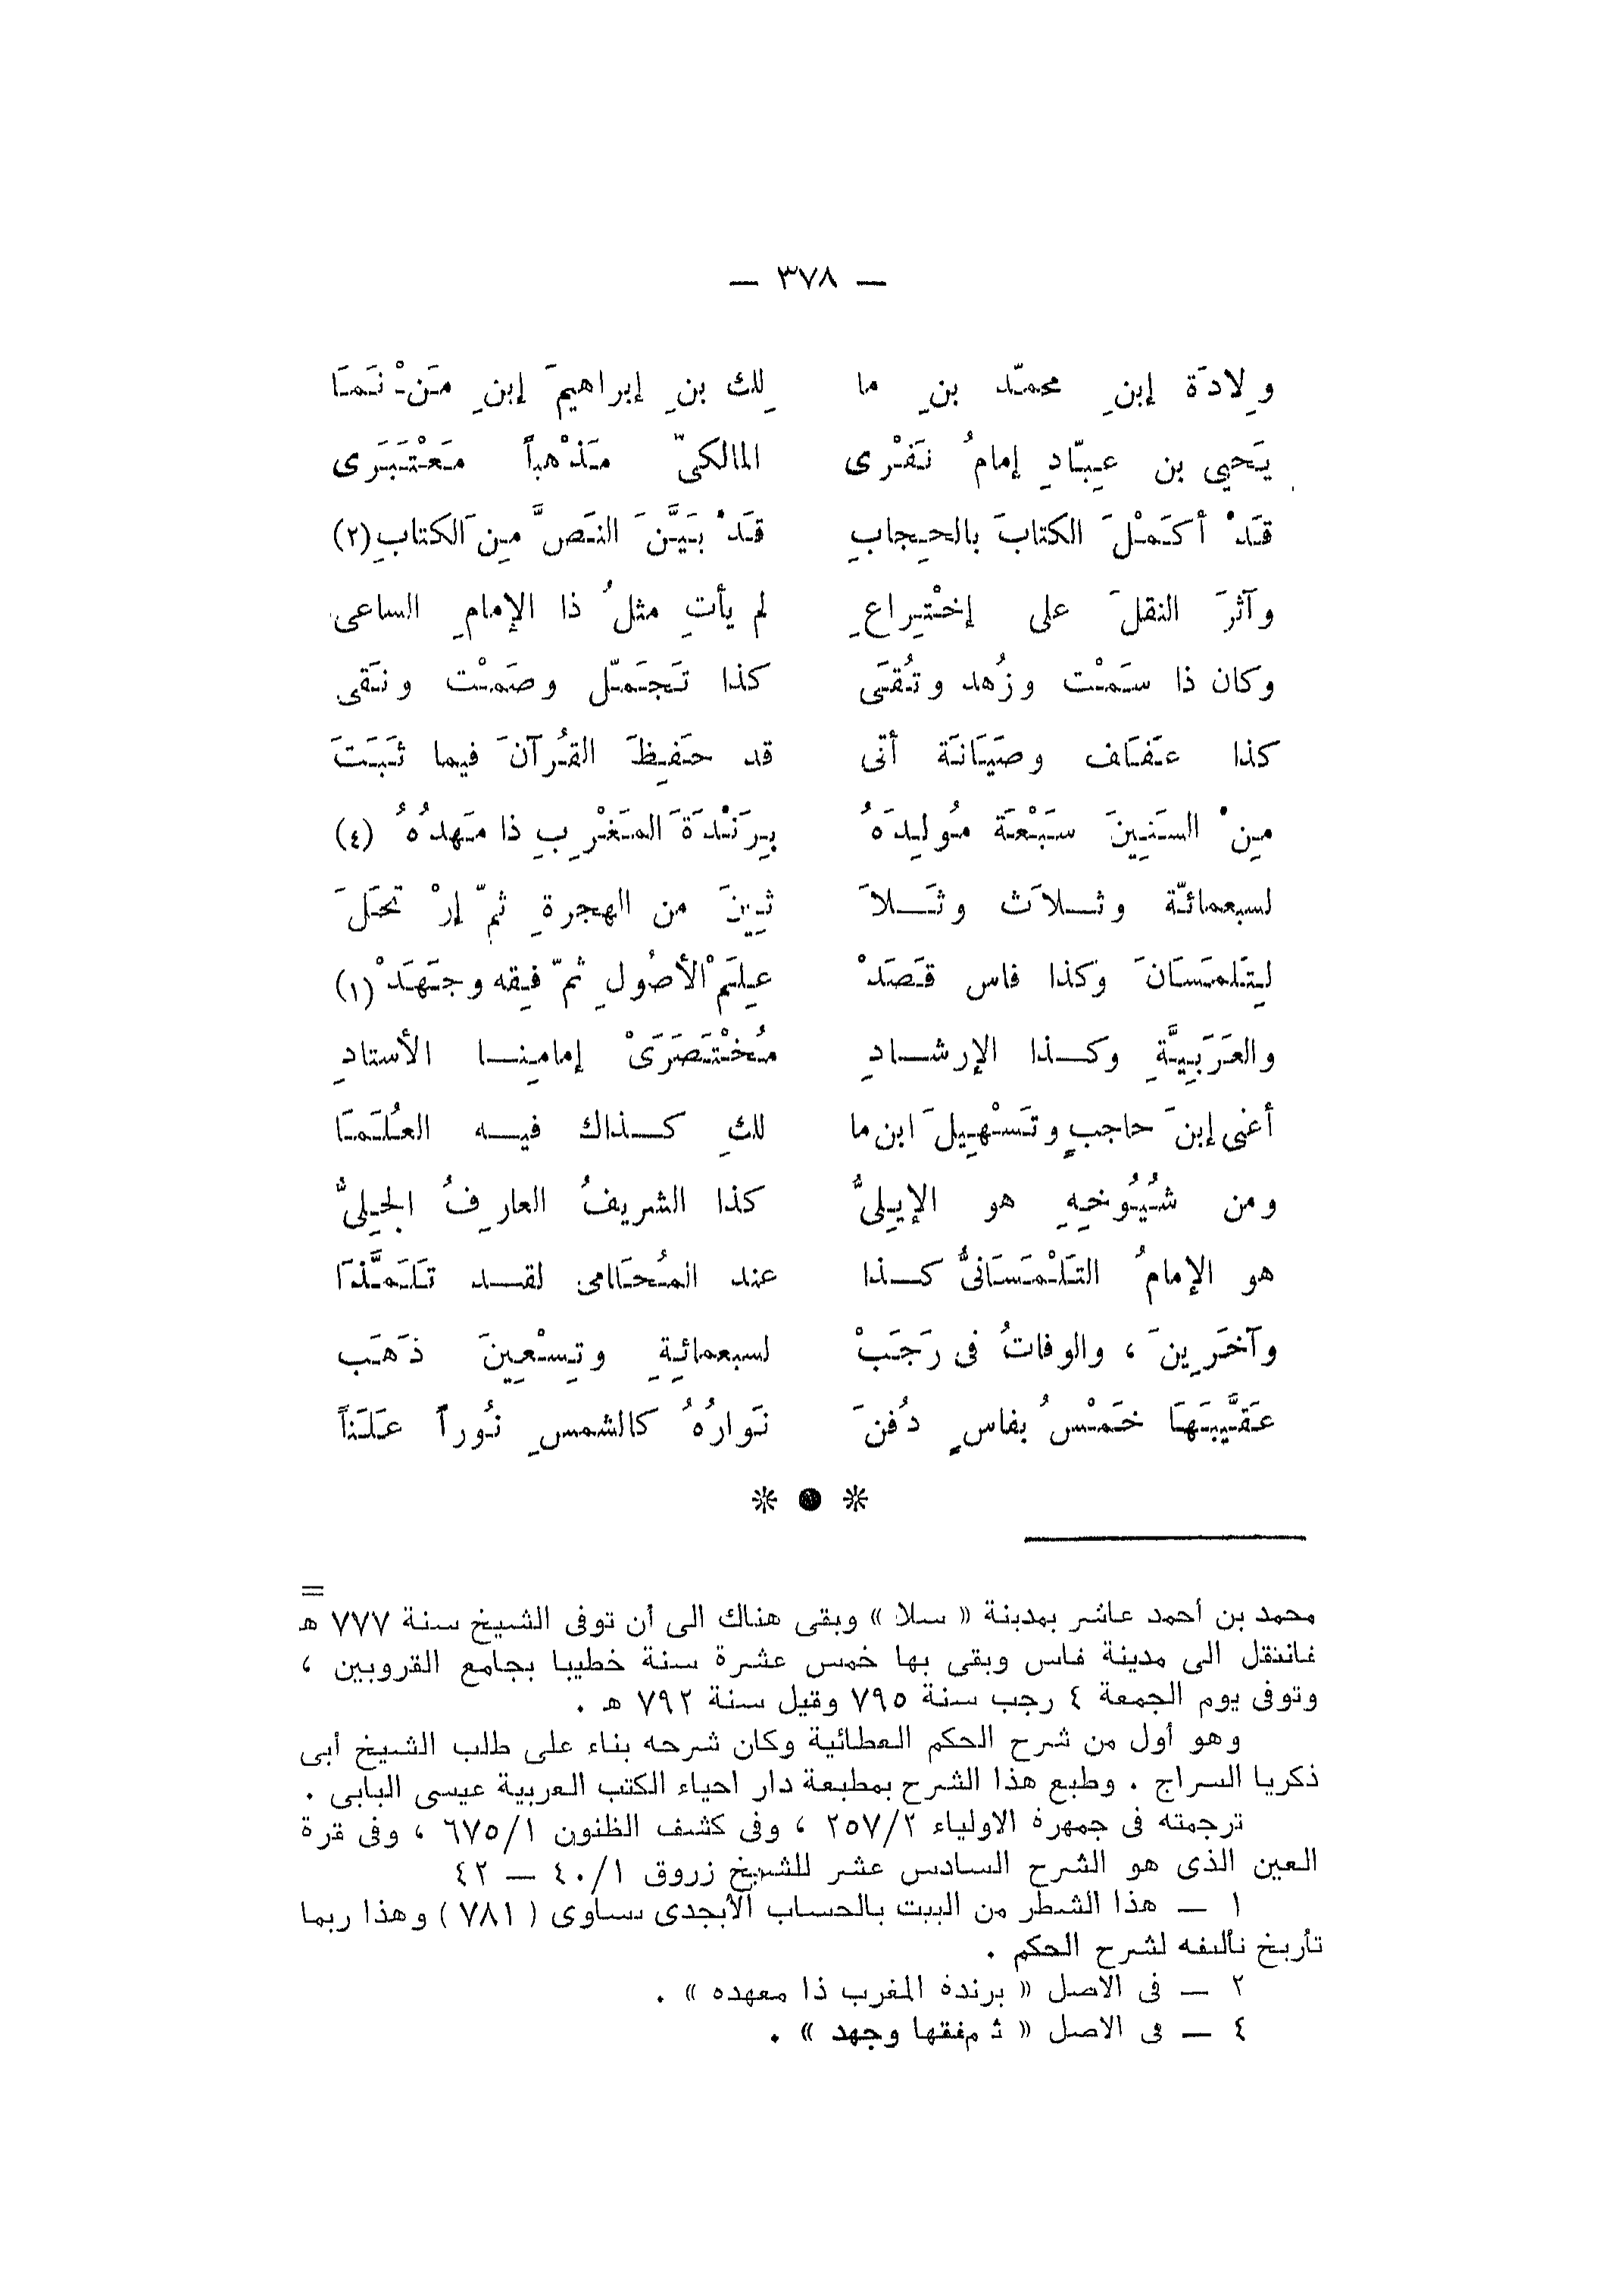 — ٣٧٨ —
وِلادَة إبنِ محمّد بنِ ما لِك بنِ إبراهيمَ إبنِ مَنْ نَمَا
يَحيِى بن عِبّادِ إمامُ نَفْرى المالكىّ مَذْهباً مَعْتَبَرَى
قَدْ أكَمْلَ الكتابَ بالحِجابِ قَدْ بَيَّنَ النَصَّ مِنَ الكتابِ (٢)
وآثرَ النقلَ على إخْتِراعِ لم يأتِ مثلُ ذا الإمامِ الساعى
وكان ذا سَمْت وزُهد وتُقَى كذا تَجَمّل وصَمْت ونَقى
كذا عَفَاف وصَيَانَة أتى قد حَفِظَ القُرآنَ فيما ثَبَتَ
مِنْ السَنِينَ سَبْعَة مُولِدَهُ بِرَنْدَةَ المَغْرِبِ ذا مَهدُهُ (٤)
لسبعمائّة وثلاَث وثَلاَ ثِينَ من الهجرةِ ثمّ إرْ تحَلَ
لِتَلمَسَانَ وكذا فاس قَصَدْ عِلَمْ الأصُولِ ثمّ فِقه وجَهَدْ (١)
والعَرَبِيَّةِ وكذا الإرشادِ مُخْتَصَرَىْ إمامِنا الأستادِ
أعنى إبنَ حاجبٍ وتَسْهِيلَ ابن ما لكِ كذاك فيه العُلَمَا
ومن شُيُوخِهِ هو الإيِلىُّ كذا الشريفُ العارِفُ الجِلِىُّ
هو الإمامُ التَلْمَسَانىُّ كذا عند المُحَامى لقد تَلَمَّذَا
وآخَرِينَ ، والوفاتُ فى رَجَبْ لسبعمائِةِ وتِسْعِينَ ذَهَب
عَقَّيبَهَا خَمْسُ بفاسٍ دُفنَ نَوارُهُ كالشمسِ نُوراً عَلَناً
* ● *
=
محمد بن أحمد عاشر بمدينة « سلا » وبقى هناك الى أن توفى الشيخ سنة ٧٧٧ هـ
فانتقل الى مدينة فاس وبقى بها خمس عشرة سنة خطيبا بجامع القرويين ،
وتوفى يوم الجمعة ٤ رجب سنة ٧٩٥ وقيل سنة ٧٩٢ هـ .
وهو أول من شرح الحكم العطائية وكان شرحه بناء على طلب الشيخ أبى
ذكريا السراج . وطبع هذا الشرح بمطبعة دار احياء الكتب العربية عيسى البابى .
ترجمته فى جمهرة الاولياء ٢٥٧/٢ ، وفى كشف الظنون ٦٧٥/١ ، وفى قرة
العين الذى هو الشرح السادس عشر للشيخ زروق ٤٠/١ — ٤٢
١ — هذا الشطر من البيت بالحساب الأبجدى يساوى ( ٧٨١ ) وهذا ربما
تأريخ تأليفه لشرح الحكم .
٢ — فى الاصل « برندة المغرب ذا معهده » .
٤ — فى الاصل « ثم فقها وجهد » .